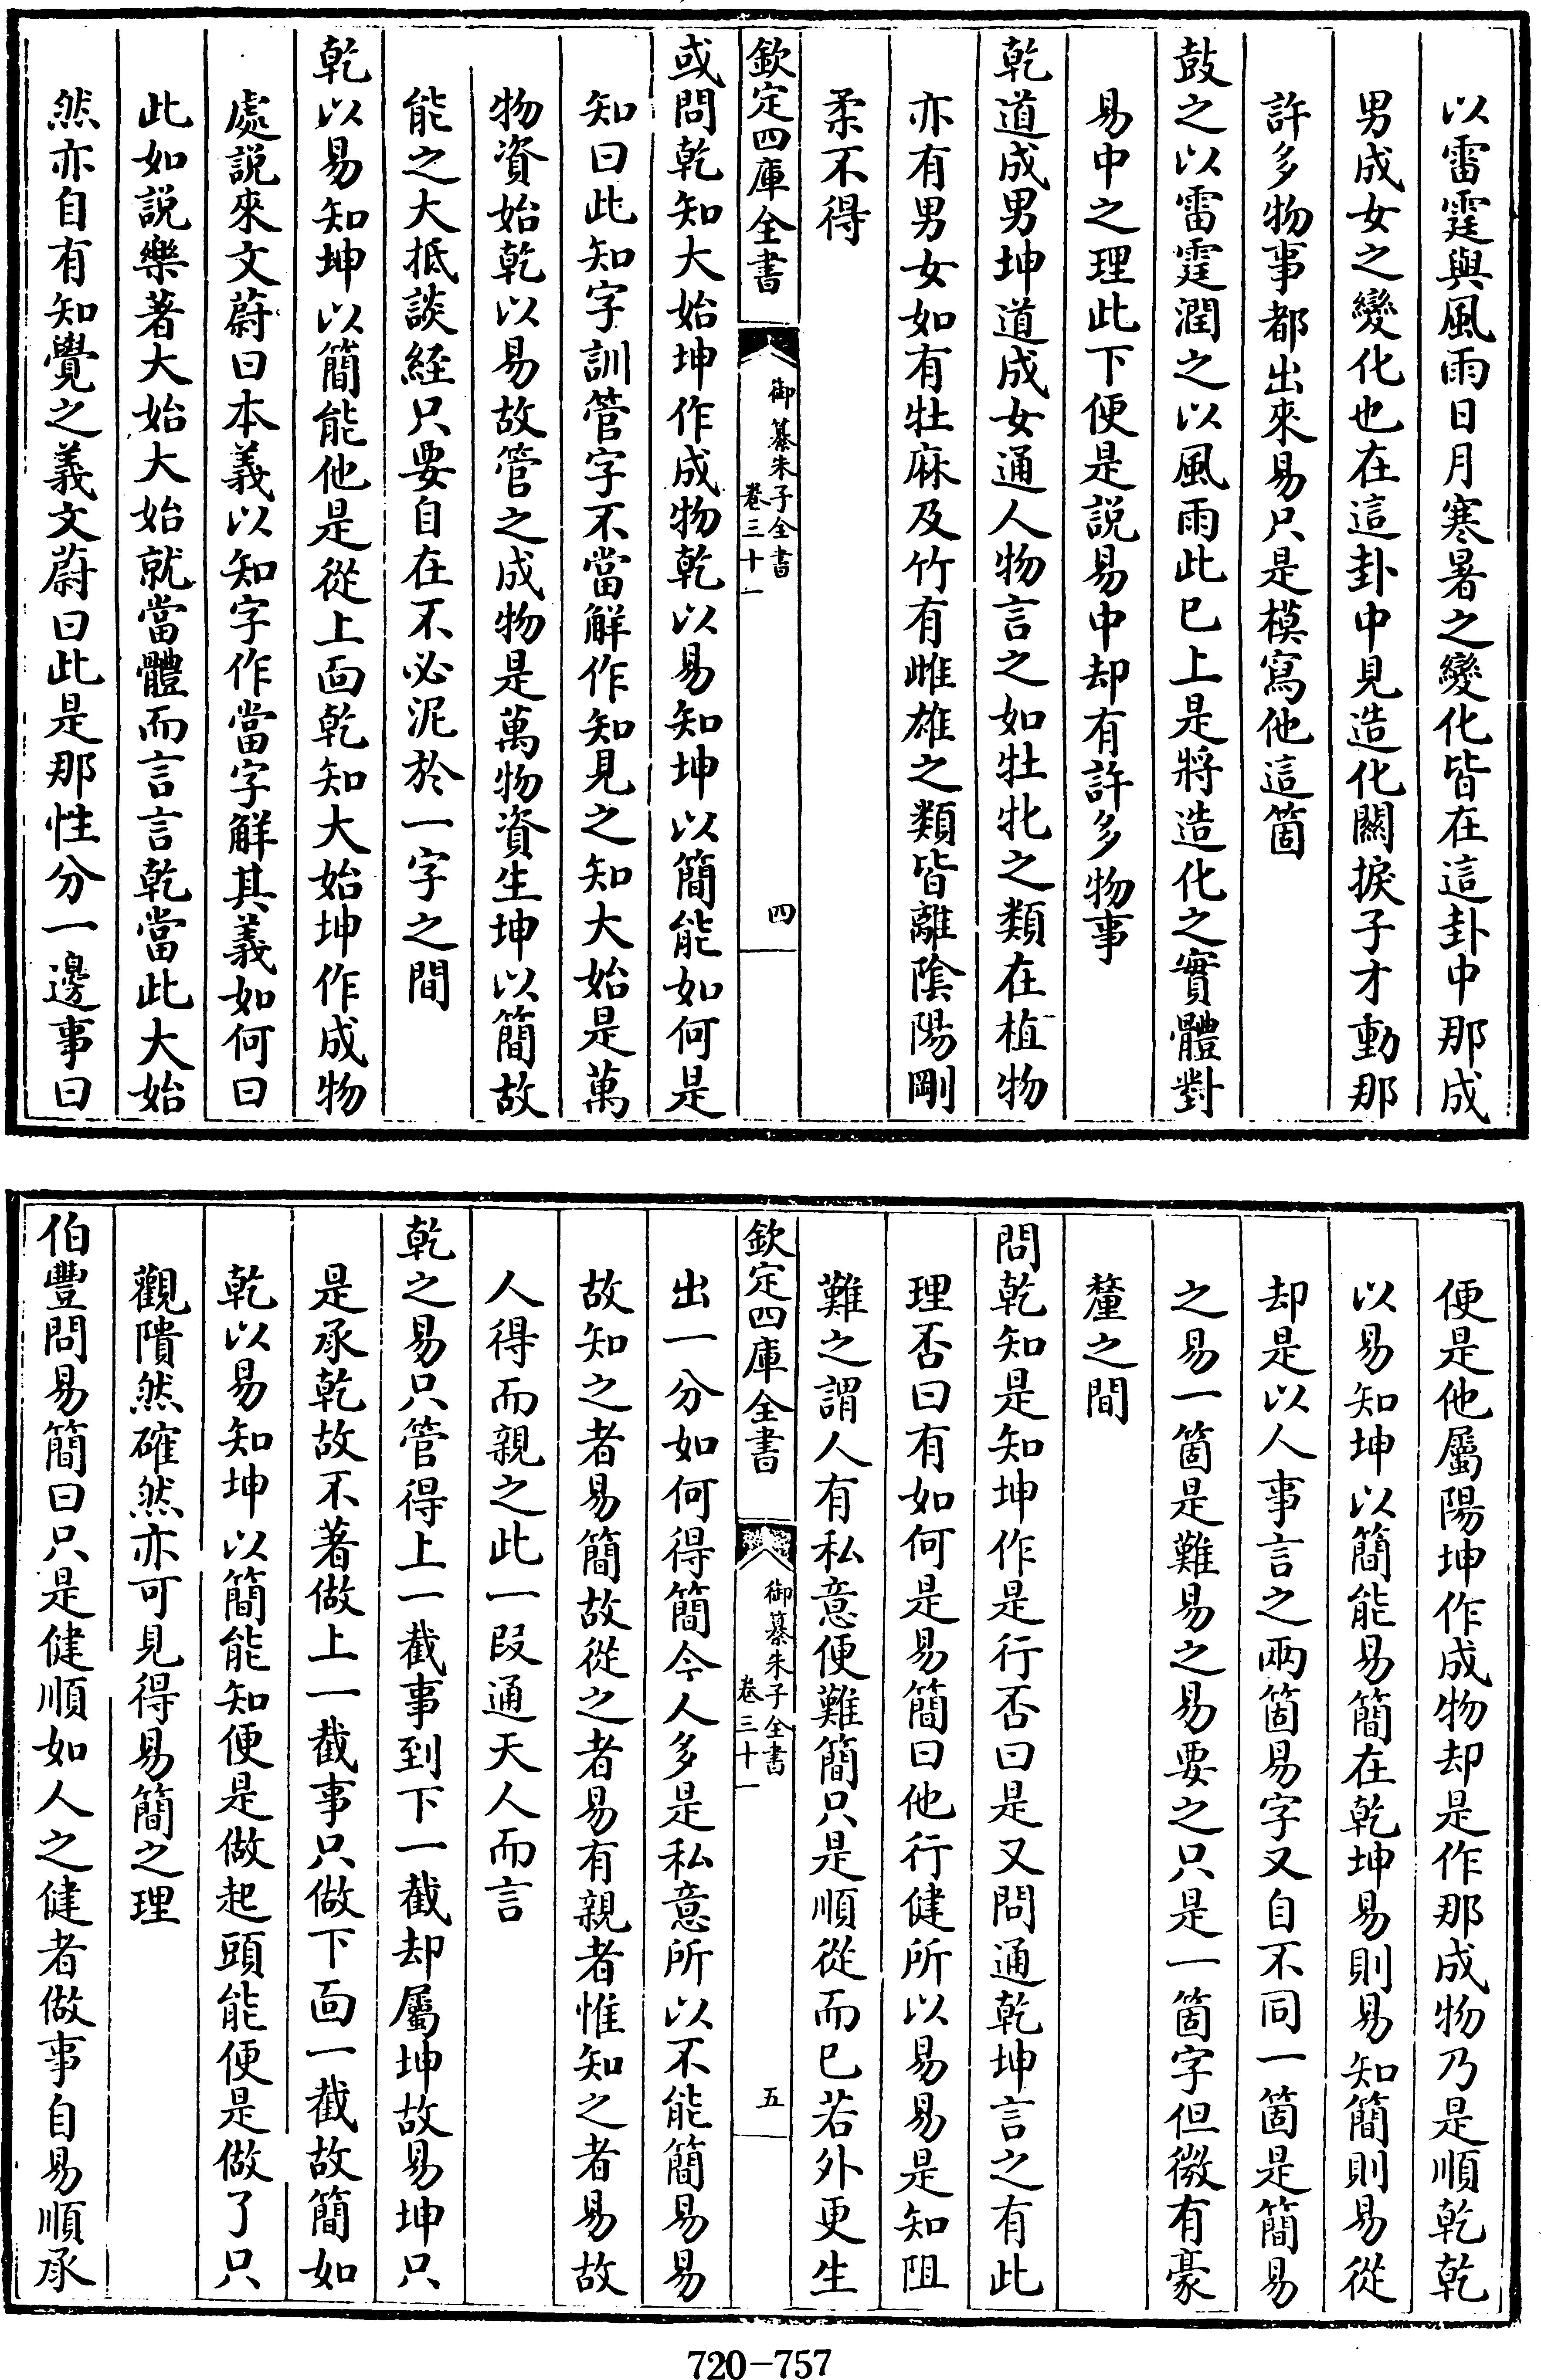 以雷霆與風雨日月寒暑之變化皆在這卦中那成
男成女之變化也在這卦中見造化關捩子才動那
許多物事都出來易只是模寫他這箇
鼓之以雷霆潤之以風雨此已上是將造化之實體對
易中之理此下便是説易中却有許多物事
乾道成男坤道成女通人物言之如牡牝之類在植物
亦有男女如有牡麻及竹有雌雄之類皆離陰陽剛
柔不得
欽定四庫全書
御纂朱子全書
卷三十一
四
或問乾知大始坤作成物乾以易知坤以簡能如何是
知曰此知字訓管字不當解作知見之知大始是萬
物資始乾以易故管之成物是萬物資生坤以簡故
能之大抵談経只要自在不必泥於一字之間
乾以易知坤以簡能他是從上面乾知大始坤作成物
處説來文蔚曰本義以知字作當字解其義如何曰
此如説樂著大始大始就當體而言言乾當此大始
然亦自有知覺之義文蔚曰此是那性分一邊事曰
便是他屬陽坤作成物却是作那成物乃是順乾乾
以易知坤以簡能易簡在乾坤易則易知簡則易從
却是以人事言之兩箇易字又自不同一箇是簡易
之易一箇是難易之易要之只是一箇字但微有豪
釐之間
問乾知是知坤作是行否曰是又問通乾坤言之有此
理否曰有如何是易簡曰他行健所以易易是知阻
難之謂人有私意便難簡只是順從而已若外更生
欽定四庫全書
御纂朱子全書
卷三十一
五
出一分如何得簡今人多是私意所以不能簡易易
故知之者易簡故從之者易有親者惟知之者易故
人得而親之此一段通天人而言
乾之易只管得上一截事到下一截却屬坤故易坤只
是承乾故不著做上一截事只做下面一截故簡如
乾以易知坤以簡能知便是做起頭能便是做了只
觀隤然確然亦可見得易簡之理
伯豐問易簡曰只是健順如人之健者做事自易順承
720-757